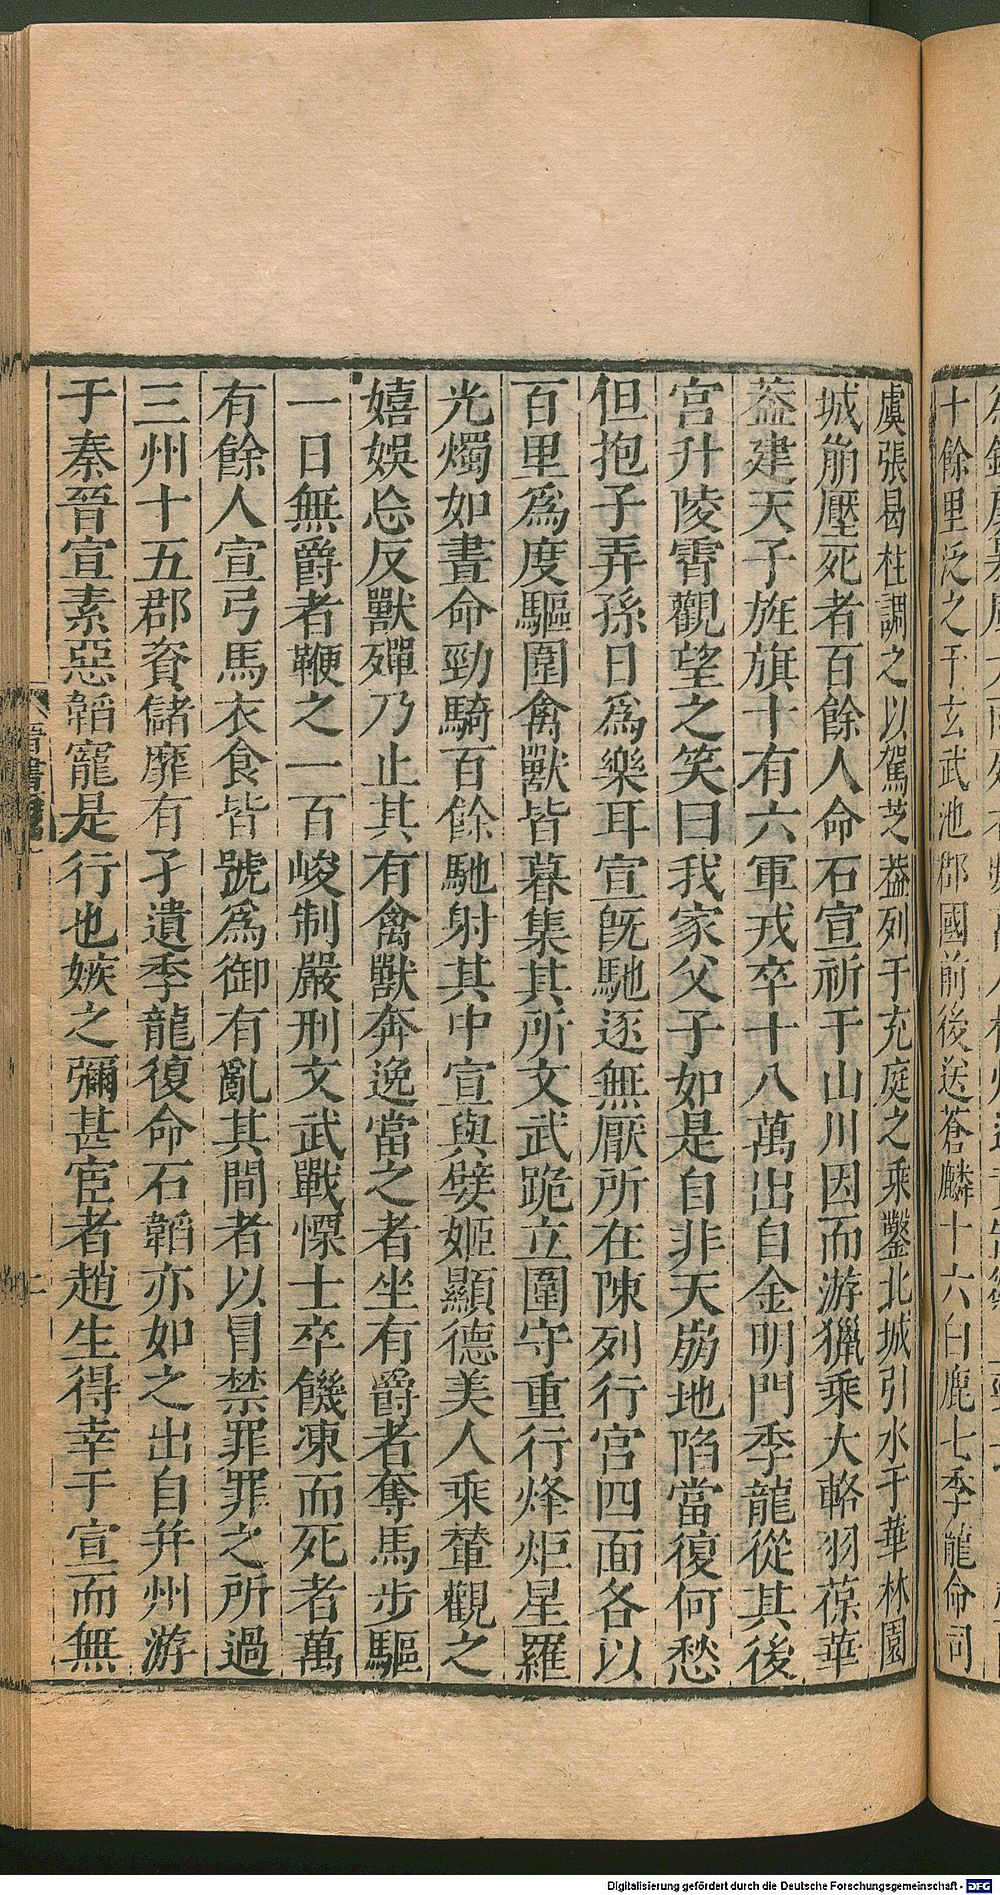 十餘里泛之于玄武池郡國前後送蒼麟十六白鹿七季龍命司
虞張曷柱調之以駕芝葢列于充庭之乘鑿北城引水于華林園
城崩壓死者百餘人命石宣祈于山川因而游獵乘大輅羽葆華
葢建天子旌旗十有六軍戎卒十八萬出自金明門季龍從其後
宮升陵霄觀望之笑曰我家父子如是自非天崩地陷當復何愁
但抱子弄孫日爲樂耳宣旣馳逐無厭所在陳列行宮四面各以
百里爲度驅圍禽獸皆暮集其所文武跪立圍守重行烽炬星羅
光燭如晝命勁騎百餘馳射其中宣與嬖姬顯德美人乘輦觀之
嬉娛忘反獸殫乃止其有禽獸奔逸當之者坐有爵者奪馬步驅
一日無爵者鞭之一百峻制嚴刑文武戰慄士卒饑凍而死者萬
有餘人宣弓馬衣食皆號爲御有亂其間者以冒禁罪罪之所過
三州十五郡資儲靡有孑遺季龍復命石韜亦如之出自并州游
于秦晉宣素惡韜寵是行也嫉之彌甚宦者趙生得幸于宣而無
晉書
Digitalisierung gefördert durch die Deutsche Forschungsgemeinschaft - DFG